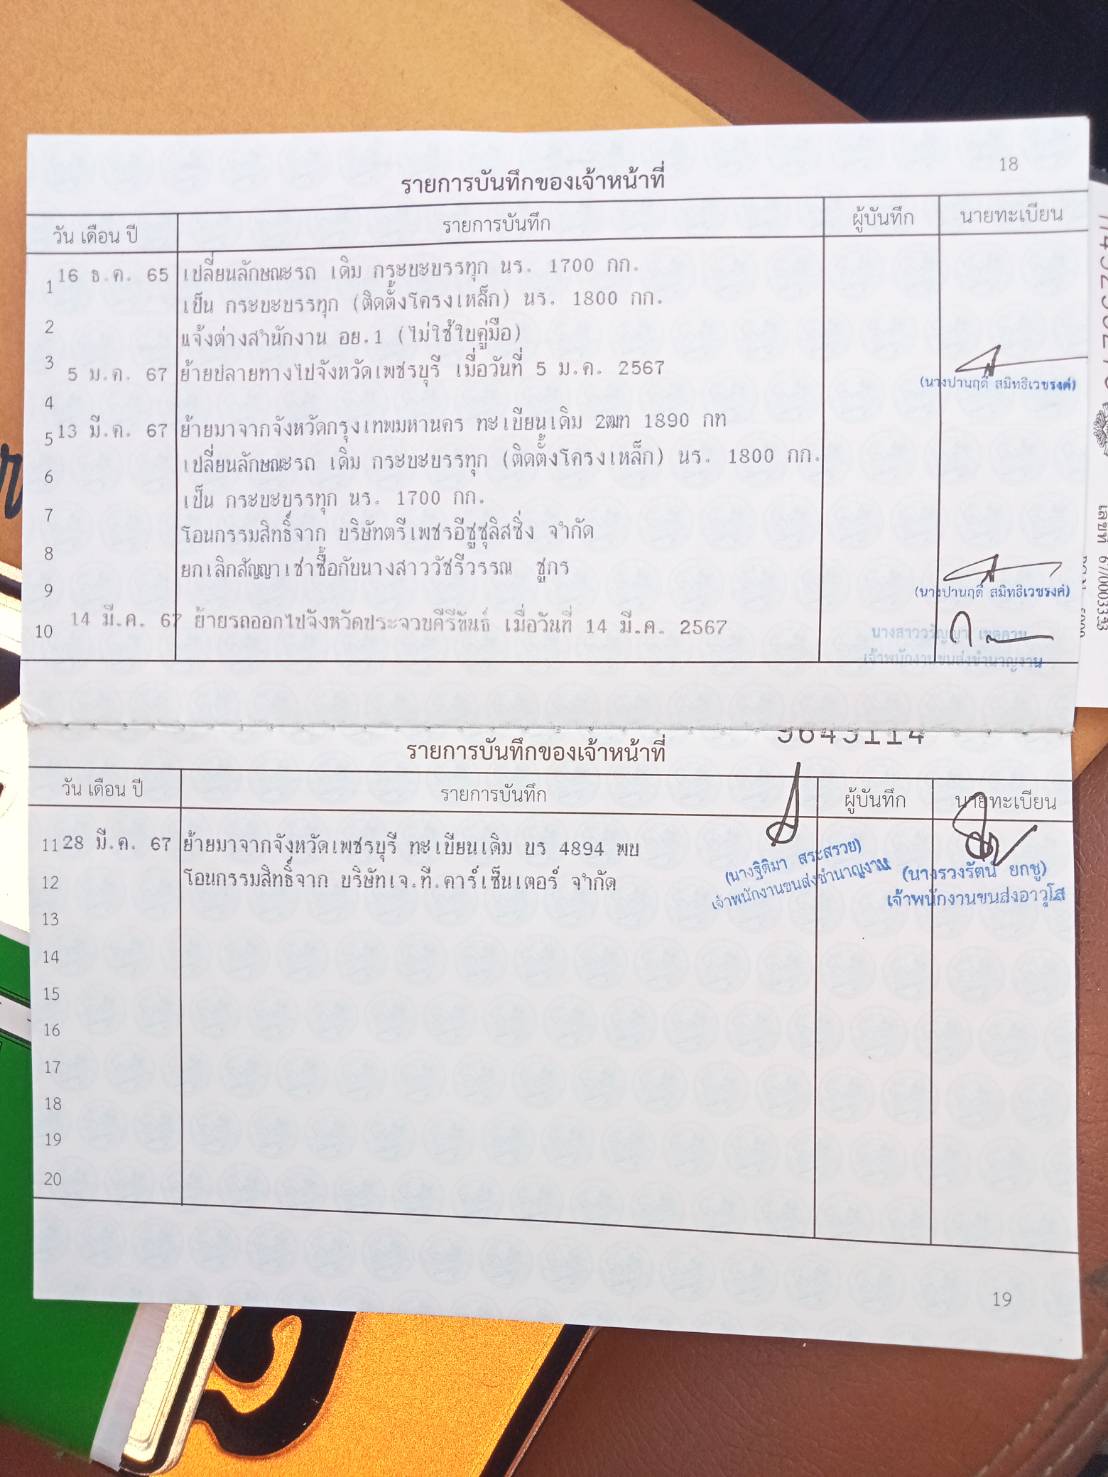 18
รายการบันทึกของเจ้าหน้าที่
วัน เดือน ปี รายการบันทึก ผู้บันทึก นายทะเบียน
1 16 ธ.ค. 65 เปลี่ยนลักษณะรถ เดิม กระบะบรรทุก นร. 1700 กก.
เป็น กระบะบรรทุก (ติดตั้งโครงเหล็ก) นร. 1800 กก.
2 แจ้งต่างสำนักงาน อย.1 (ไม่ใช้ใบคู่มือ)
3 5 ม.ค. 67 ย้ายปลายทางไปจังหวัดเพชรบุรี เมื่อวันที่ 5 ม.ค. 2567
(นางปานฤดี สมิทธิเวชรงค์)
4
5 13 มี.ค. 67 ย้ายมาจากจังหวัดกรุงเทพมหานคร ทะเบียนเดิม 2ฒท 1890 กท
6 เปลี่ยนลักษณะรถ เดิม กระบะบรรทุก (ติดตั้งโครงเหล็ก) นร. 1800 กก.
เป็น กระบะบรรทุก นร. 1700 กก.
7 โอนกรรมสิทธิ์จาก บริษัทตรีเพชรอีซูซุลิสซิ่ง จำกัด
8 ยกเลิกสัญญาเช่าซื้อกับนางสาววัชรีวรรณ ชูกร
9 (นางปานฤดี สมิทธิเวชรงค์)
10 14 มี.ค. 67 ย้ายรถออกไปจังหวัดประจวบคีรีขันธ์ เมื่อวันที่ 14 มี.ค. 2567
นางสาววรัญญา
เจ้าพนักงานขนส่งชำนาญงาน
เลขที่ 67/0003343
9649114
รายการบันทึกของเจ้าหน้าที่
วัน เดือน ปี รายการบันทึก ผู้บันทึก นายทะเบียน
11 28 มี.ค. 67 ย้ายมาจากจังหวัดเพชรบุรี ทะเบียนเดิม บร 4894 พบ
12 โอนกรรมสิทธิ์จาก บริษัทเจ.ที.คาร์เซ็นเตอร์ จำกัด
(นางฐิติมา สระสรวย)
เจ้าพนักงานขนส่งชำนาญงาน
(นางรวงรัตน์ ยกชู)
เจ้าพนักงานขนส่งอาวุโส
13
14
15
16
17
18
19
20
19